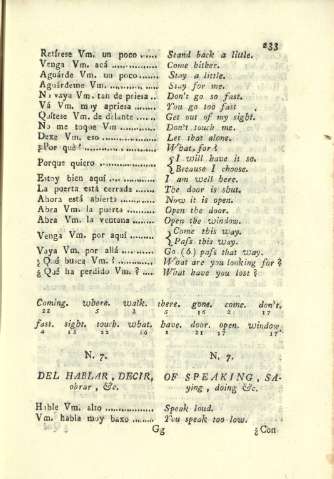 233
Retírese Vm. un poco ...... Stand back a little.
Venga Vm. acá ............... Come hither.
Aguárde Vm. un poco ........ Stay a little.
Aguárdeme Vm. ............... Stay for me.
No vaya Vm. tan de priesa .. Don't go so fast.
Vá Vm. muy apriesa ......... You go too fast
Quítese Vm. de delante ...... Get out of my sight.
No me toque Vm ............ Don't touch me.
Dexe Vm. eso ............... Let that alone.
¿Por qué? .................. What for?
Porque quiero ............... { I will have it so.
{ Because I choose.
Estoy bien aquí ............. I am well here.
La puerta está cerrada ...... The door is shut.
Ahora está abierta .......... Now it is open.
Abra Vm. la puerta .......... Open the door.
Abra Vm. la ventana ........ Open the window.
Venga Vm. por aquí ........ { Come this way.
{ Pass this way.
Vaya Vm. por allá .......... Go (ó) pass that way.
¿Qué busca Vm.? ............ What are you looking for?
¿Qué ha perdido Vm.? .... What have you lost?
Coming. where. walk. there. gone. come. don't.
22 5 2 5 16 21 17
fast. sight. touch. what. have. door. open. window.
4 13 22 16 6 21 17
N. 7. N. 7.
DEL HABLAR, DECIR, OF SPEAKING, SA-
obrar, &c. ying, doing &c.
Hable Vm. alto ............... Speak loud.
Vm. habla muy baxo ........ You speak too low.
Gg ¿Con